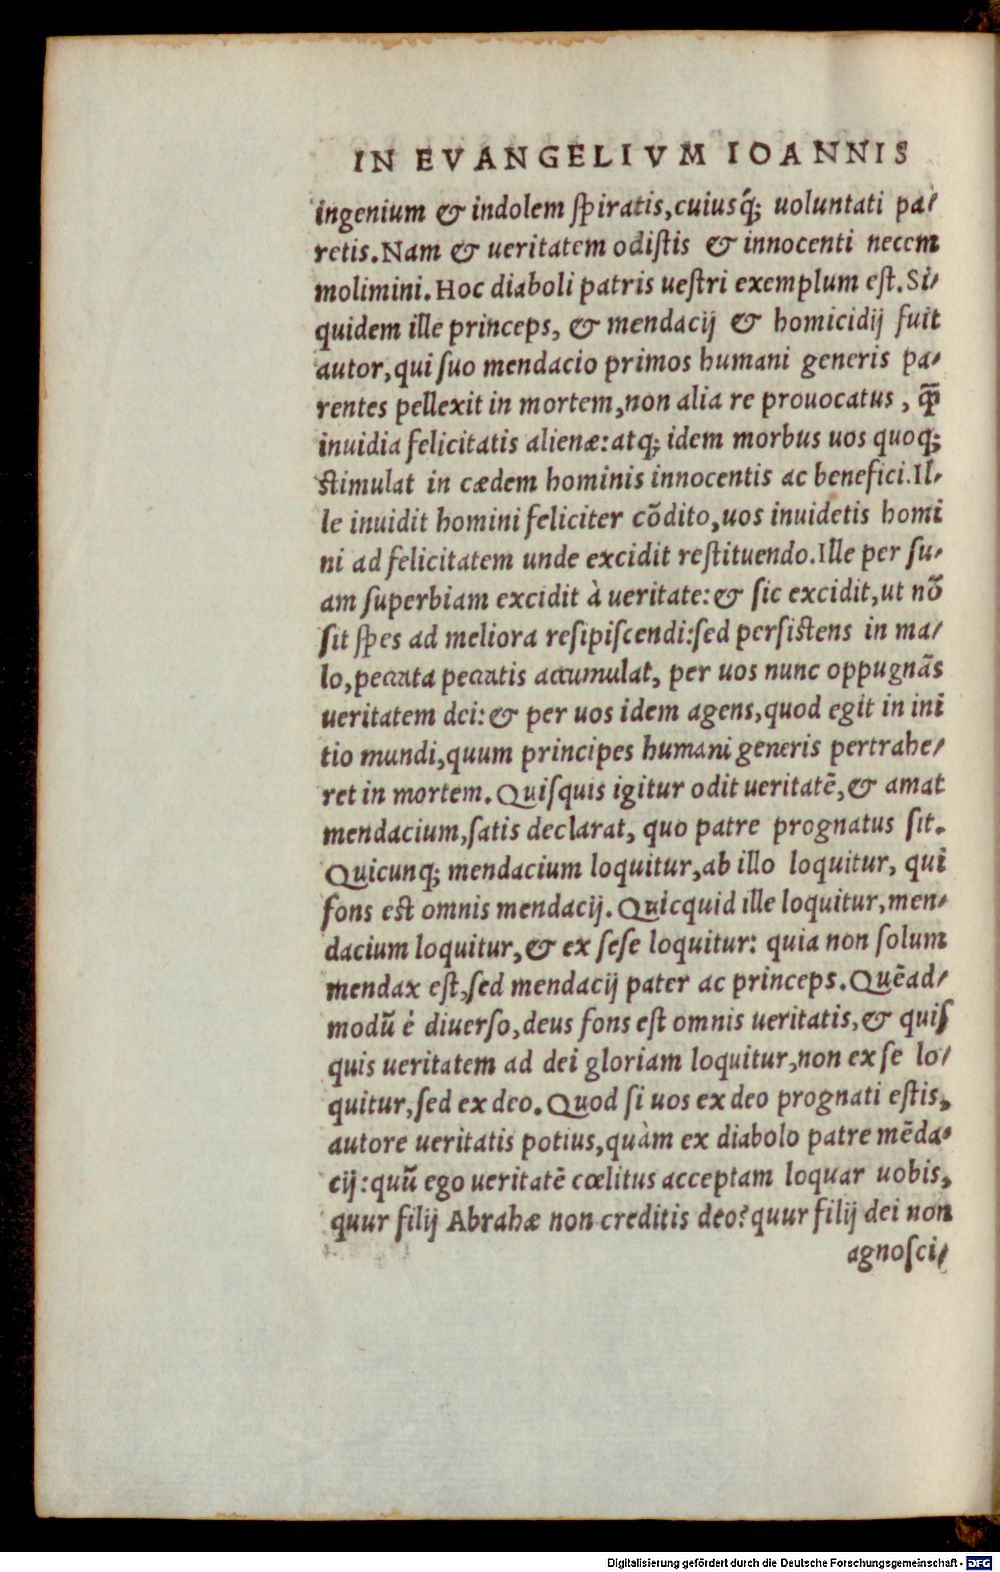 IN EVANGELIVM IOANNIS
ingenium & indolem ſpiratis,cuiusq́; uoluntati pa/
retis.Nam & ueritatem odiſtis & innocenti necem
molimini.Hoc diaboli patris ueſtri exemplum eſt.Si/
quidem ille princeps, & mendacij & homicidij fuit
autor,qui ſuo mendacio primos humani generis pa/
rentes pellexit in mortem,non alia re prouocatus , q̄̃
inuidia felicitatis alienæ:atq; idem morbus uos quoq;
stimulat in cædem hominis innocentis ac benefici.Il/
le inuidit homini feliciter cõdito,uos inuidetis homi
ni ad felicitatem unde excidit reſtituendo.Ille per ſu/
am ſuperbiam excidit à ueritate:& ſic excidit,ut nõ
ſit ſpes ad meliora reſipiſcendi:ſed persistens in ma/
lo,peccata peccatis accumulat, per uos nunc oppugnãs
ueritatem dei:& per uos idem agens,quod egit in ini
tio mundi,quum principes humani generis pertrahe/
ret in mortem.Quiſquis igitur odit ueritatẽ,& amat
mendacium,ſatis declarat, quo patre prognatus ſit.
Quicunq; mendacium loquitur,ab illo loquitur, qui
fons est omnis mendacij.Quicquid ille loquitur,men/
dacium loquitur,& ex ſeſe loquitur: quia non ſolum
mendax eſt,ſed mendacij pater ac princeps.Quẽad/
modũ è diuerſo,deus fons eſt omnis ueritatis,& quiſ
quis ueritatem ad dei gloriam loquitur,non ex ſe lo/
quitur,ſed ex deo.Quod ſi uos ex deo prognati eſtis,
autore ueritatis potius,quàm ex diabolo patre mẽda/
cij:quũ ego ueritatẽ cœlitus acceptam loquar uobis,
quur filij Abrahæ non creditis deo?quur filij dei non
agnoſci/
Digitalisierung gefördert durch die Deutsche Forschungsgemeinschaft - DFG